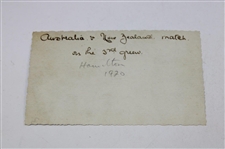 Australia & New Zealand match
on the 3rd green
Hamilton
1920.